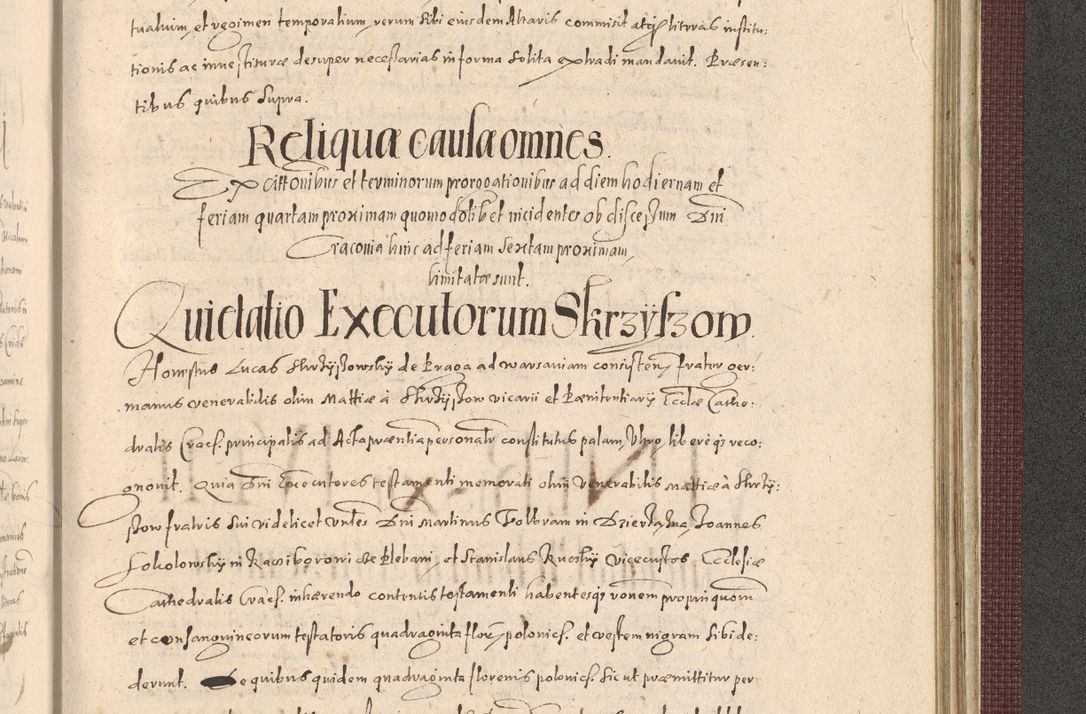 tualium, et regimen temporalium, rerum sibi eiusdem Altaris commisit atq; literas institu:
tionis ac investituræ desuper necessarias in forma solita extradi mandavit. Præsen:
tibus quibus supra.
Reliquæ causæ omnes.
Ex citationibus et terminorum prorogationibus ad diem hodiernam et
feriam quartam proximam quomodolibet incidentes ob discessum Dni
Cracovia hinc ad feriam sextam proximam,
limitatæ sunt.
Quietatio Executorum Skrzyszow.
Honestus Lucas Skrzyszowsky de Praga ad Warsaviam consisten. frater ger:
manus venerabilis olim Mattiæ à Skrzyszow vicarii et Pœnitentiarij Ecclæ Cathe:
dralis Cracs. principalis ad Acta præntia personalr constitutus palam, Vltro, liberè q; reco:
gnovit. Quia Dni Executores testamenti memorati olim Venerabilis Mattiæ à Skrzy:
szow fratris sui videlicet Vntes Dni Martinus in Joannes
Sokolowsky in et Stanislaus vicecustos Ecclesiæ
Cathedralis Cracs. inhærendo contentis testamenti habentesq; ronem propinquorum
et consanguineorum testatoris quadraginta flor. polonics. et vestem nigram sibi de:
derunt. De quibus quidem quadraginta florenis polonics. sicut præmittitur per